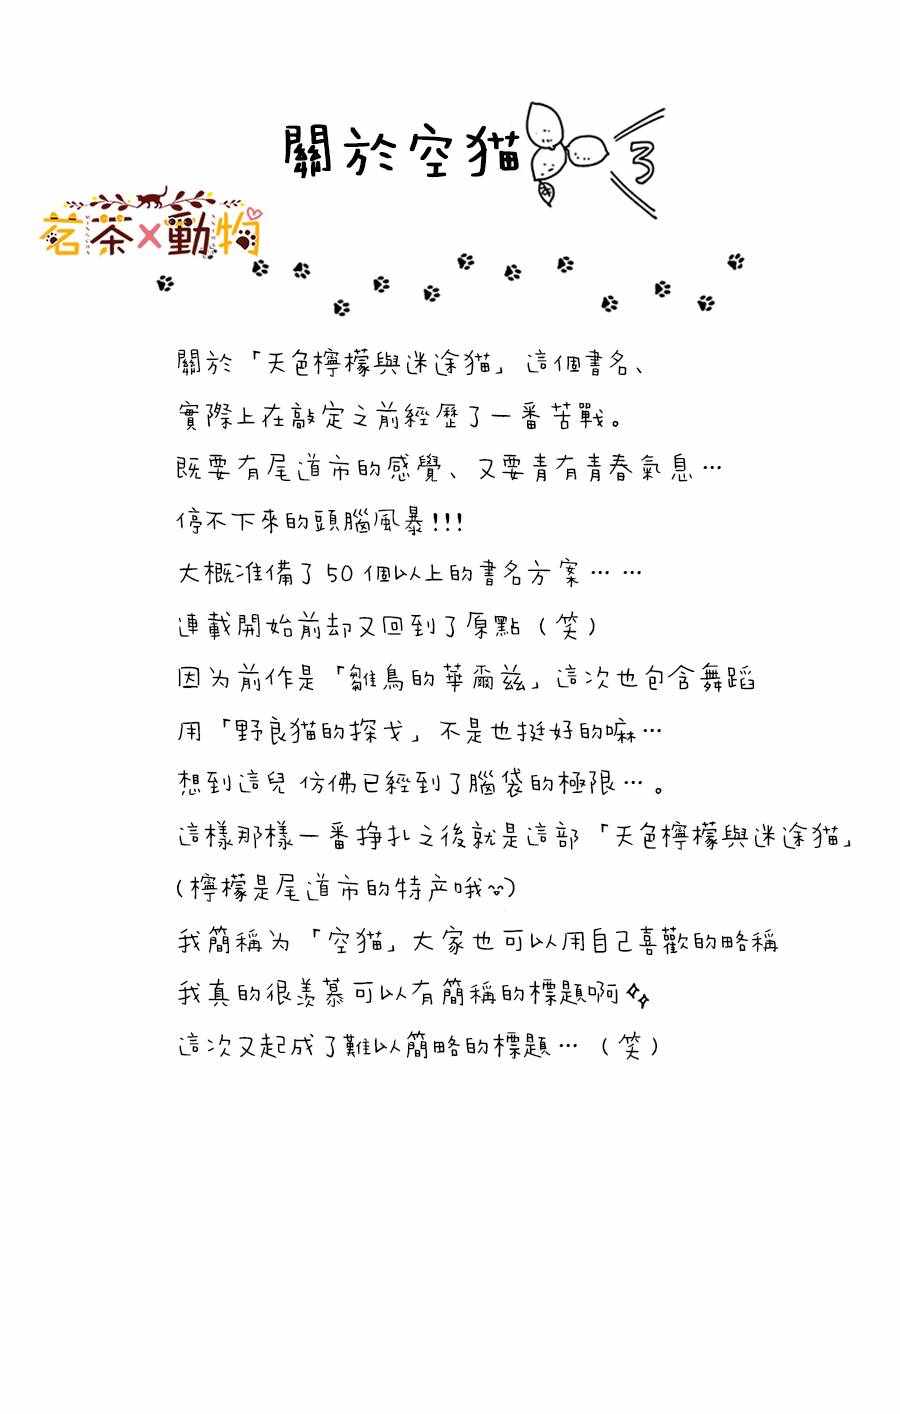 關於空猫 3
茗茶×動物
關於「天色檸檬與迷途猫」這個書名、
實際上在敲定之前經歷了一番苦戰。
既要有尾道市的感覺、又要青有青春氣息…
停不下來的頭腦風暴!!!
大概准備了50個以上的書名方案……
連載開始前却又回到了原點（笑）
因为前作是「雛鳥的華爾兹」這次也包含舞蹈
用「野良猫的探戈」不是也挺好的嘛…
想到這兒仿佛已經到了腦袋的極限…。
這樣那樣一番掙扎之後就是這部「天色檸檬與迷途猫」
(檸檬是尾道市的特产哦~)
我簡稱为「空猫」大家也可以用自己喜歡的略稱
我真的很羡慕可以有簡稱的標題啊
這次又起成了難以簡略的標題…（笑）